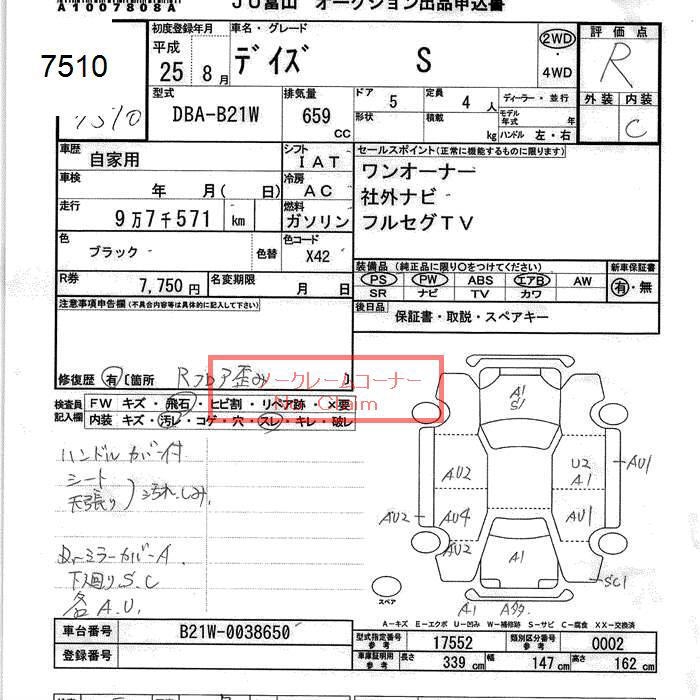 A1007808A
JU富山 オークション出品申込書
7510
初度登録年月
平成
25 8月
車名・グレード
デイズ S
2WD
・
4WD
評価点
R
外装 内装
C
型式
DBA-B21W
排気量
659
CC
ドア 5
定員 4人
形状
積載 kg
ディーラー・並行
モデル
年式 年
ハンドル 左・右
車歴
自家用
シフト
IAT
セールスポイント(正常に機能するものに限ります)
ワンオーナー
社外ナビ
フルセグTV
車検
年 月( 日)
冷房
AC
走行
9万7千571 km
燃料
ガソリン
色
ブラック
色替
色コード
X42
R券
7,750円
名変期限
月 日
装備品(純正品に限り○をつけてください)
PS PW ABS エアB AW
SR ナビ TV カワ
新車保証書
有・無
注意事項申告欄(不具合内容等は具体的に記入して下さい)
後日品
保証書・取説・スペアキー
修復歴 有 [箇所 Rフロア歪み ]
ノークレームコーナー
No Claim
検査員
記入欄
FW キズ・飛石・ヒビ割・リペア跡・×要
内装 キズ・汚レ・コゲ・穴・スレ・キレ・破レ
ハンドルカバー付
シート
天張り
汚れ.しみ.
Drミラーカバー A.
下廻りS.C
各A.U.
A1
S1
AU2
U2
A1
AU1
AU2
AU4
AU1
AU2
A1
SC1
スペア
A1 A多
A-キズ E-エクボ U-凹み W-補修跡 S-サビ C-腐食 XX-交換済
車台番号
B21W-0038650
登録番号
型式指定番号
参考
17552
類別区分番号
参考
0002
車庫証明用
参考
長さ 339 cm 幅 147 cm 高さ 162 cm